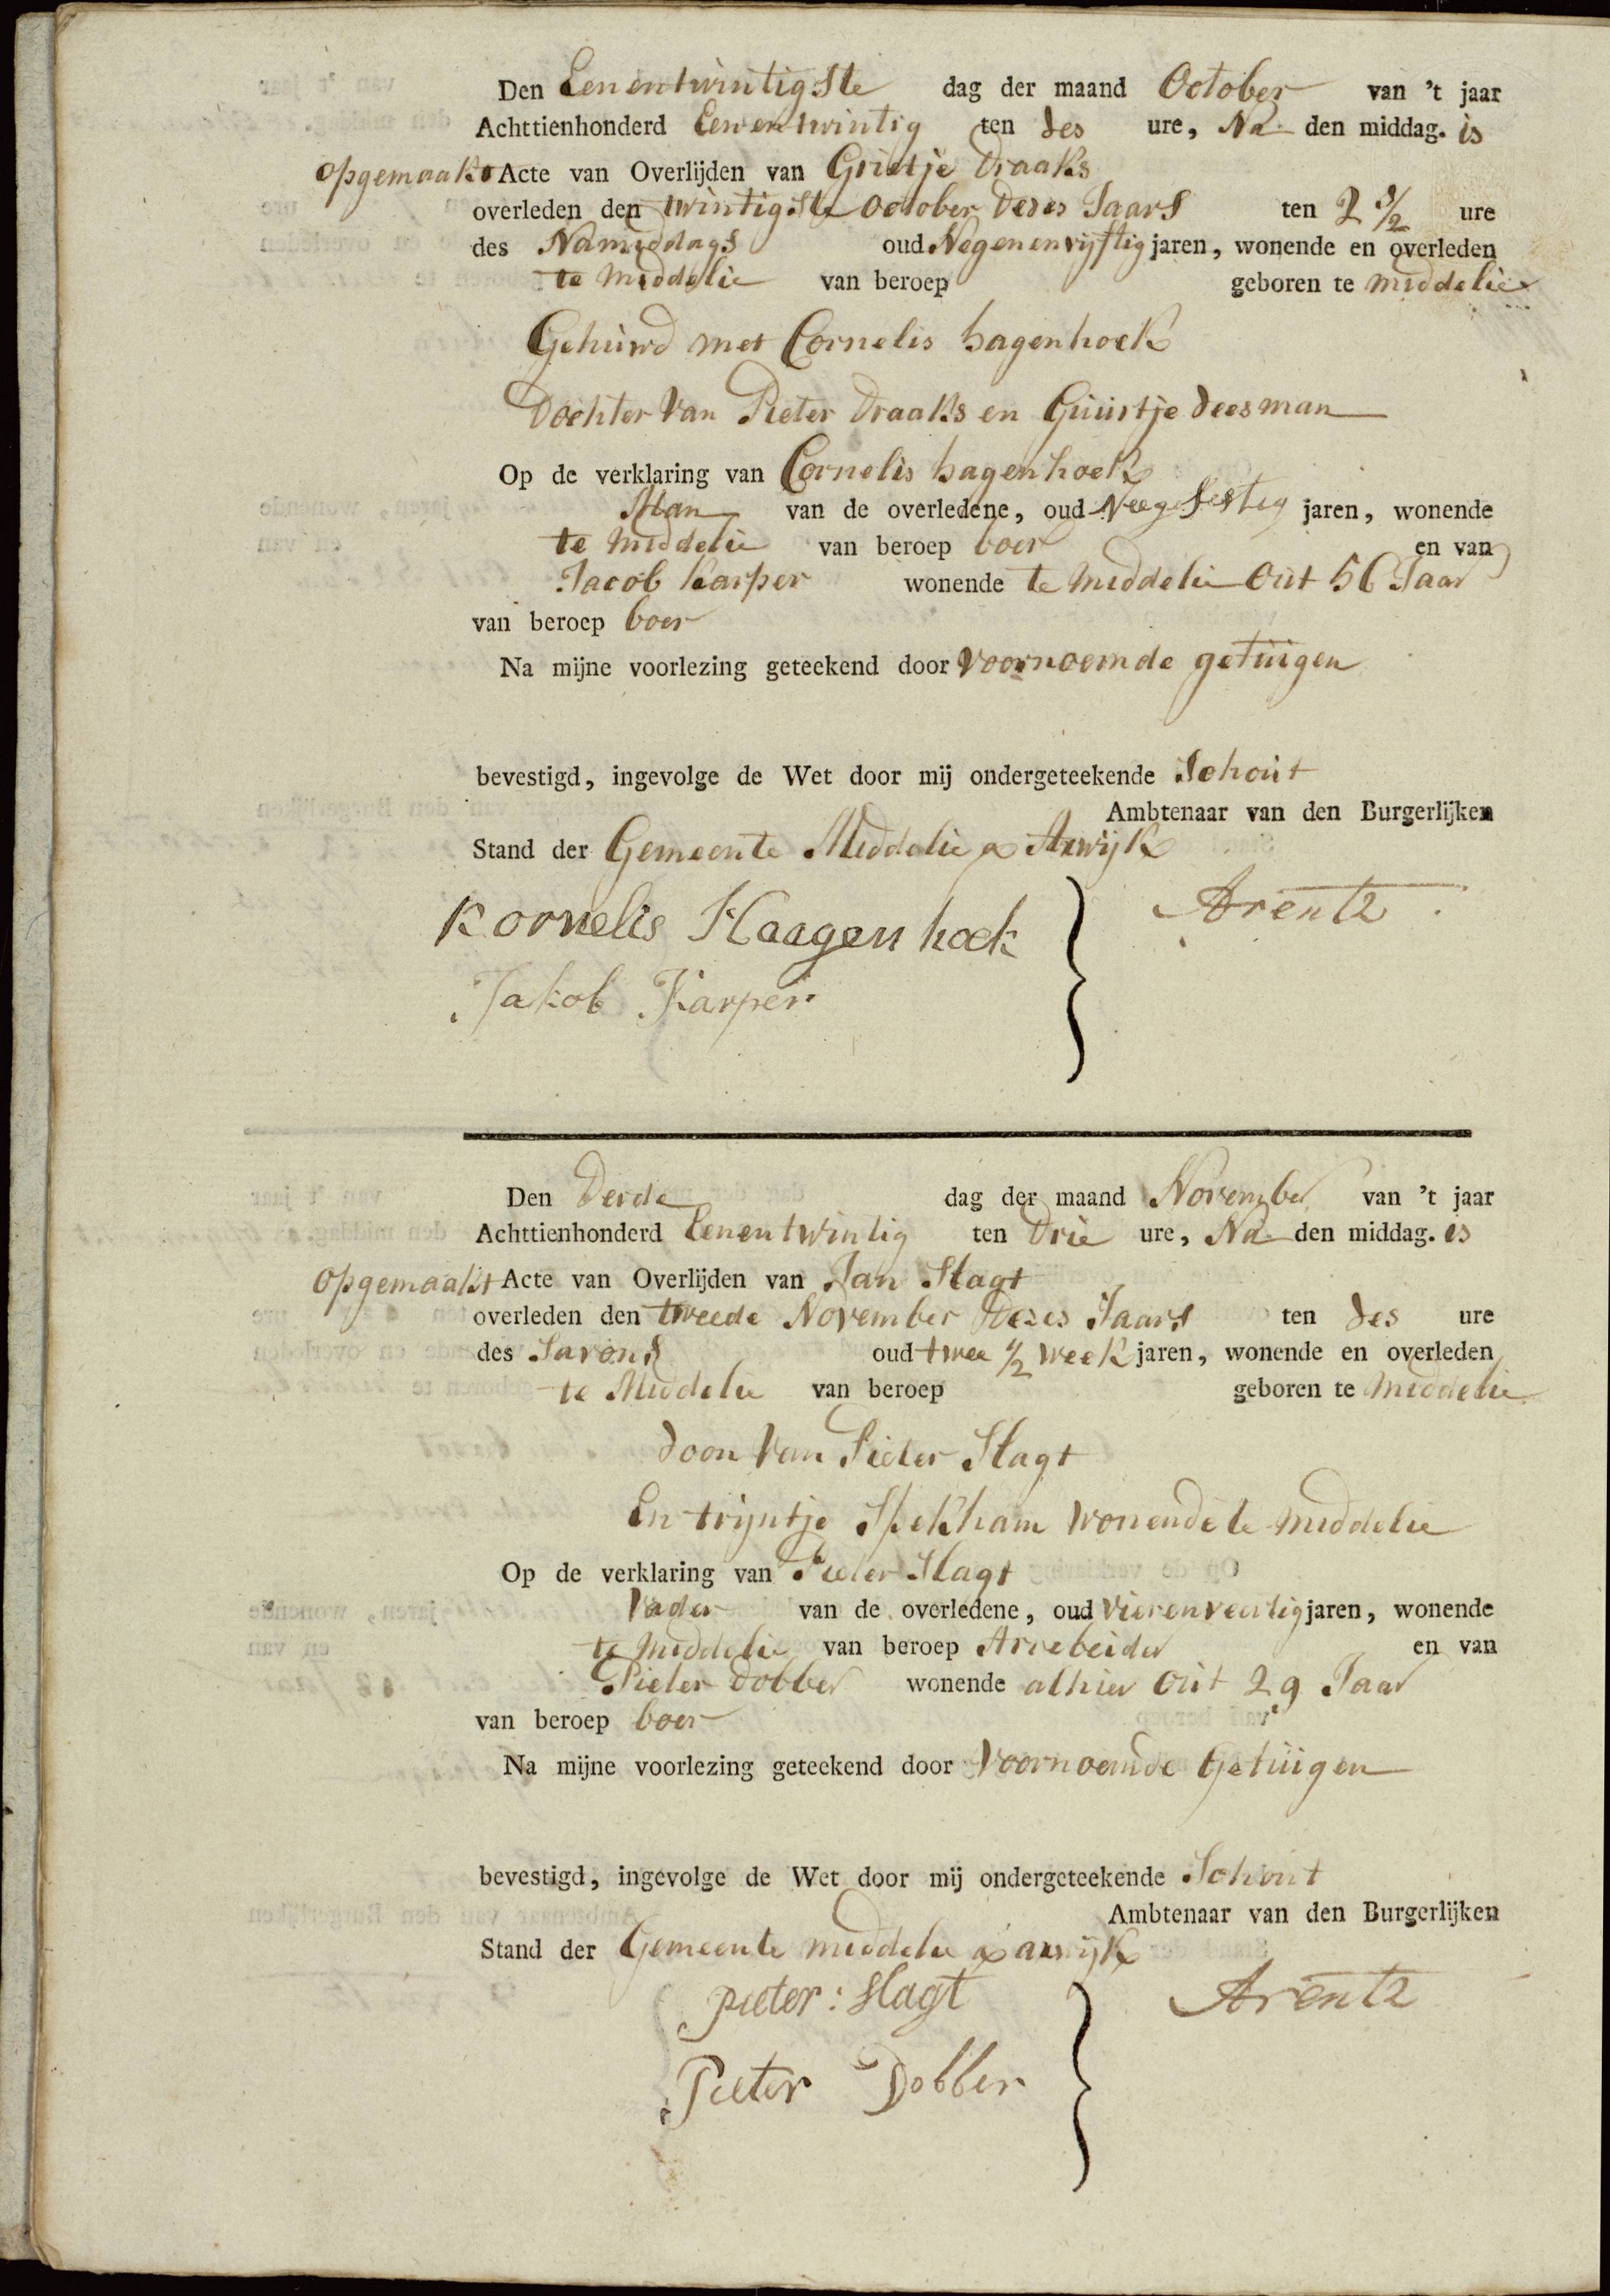 Den Eenentwintigste dag der maand October van 't jaar
Achttienhonderd Eenentwintig ten Ses ure, Na den middag. is
opgemaakt Acte van Overlijden van Grietje Draaks
overleden den twintigste October Deses Jaars ten 2 1/2 ure
des Namiddags oud Negenenvijftig jaren, wonende en overleden
te Middelie van beroep geboren te Middelie
Gehuwd met Cornelis hagenhoek
Dochter Van Pieter Draaks en Guurtje Seesman
Op de verklaring van Cornelis hagenhoek
Man van de overledene, oud sestig jaren, wonende
te Middelie van beroep boer en van
Jacob Karper wonende te Middelie Out 56 Jaar
van beroep boer
Na mijne voorlezing geteekend door Voornoemde getuigen
bevestigd, ingevolge de Wet door mij ondergeteekende Schout
Ambtenaar van den Burgerlijken
Stand der Gemeente Middelie & Axwijk
Kornelis Haagen hoek
Arentz
Jakob Karper
Den Derde dag der maand November van 't jaar
Achttienhonderd Eenentwintig ten Drie ure, Na den middag. is
Opgemaakt Acte van Overlijden van Jan Slagt
overleden den tweede November Dezes Jaars ten Ses ure
des Savonds oud twee 1/2 week jaren, wonende en overleden
te Middelie van beroep geboren te Middelie
Soon Van Pieter Slagt
En trijntje Spekham wonende te Middelie
Op de verklaring van Pieter Slagt
Vader van de overledene, oud Vierenveertig jaren, wonende
te Middelie van beroep Arrebeider en van
Pieter Dobber wonende alhier Out 29 Jaar
van beroep boer
Na mijne voorlezing geteekend door Voornoemde Getuigen
bevestigd, ingevolge de Wet door mij ondergeteekende Schout
Ambtenaar van den Burgerlijken
Stand der Gemeente middelie & axwijk
pieter: slagt
Arentz
Pieter Dobber